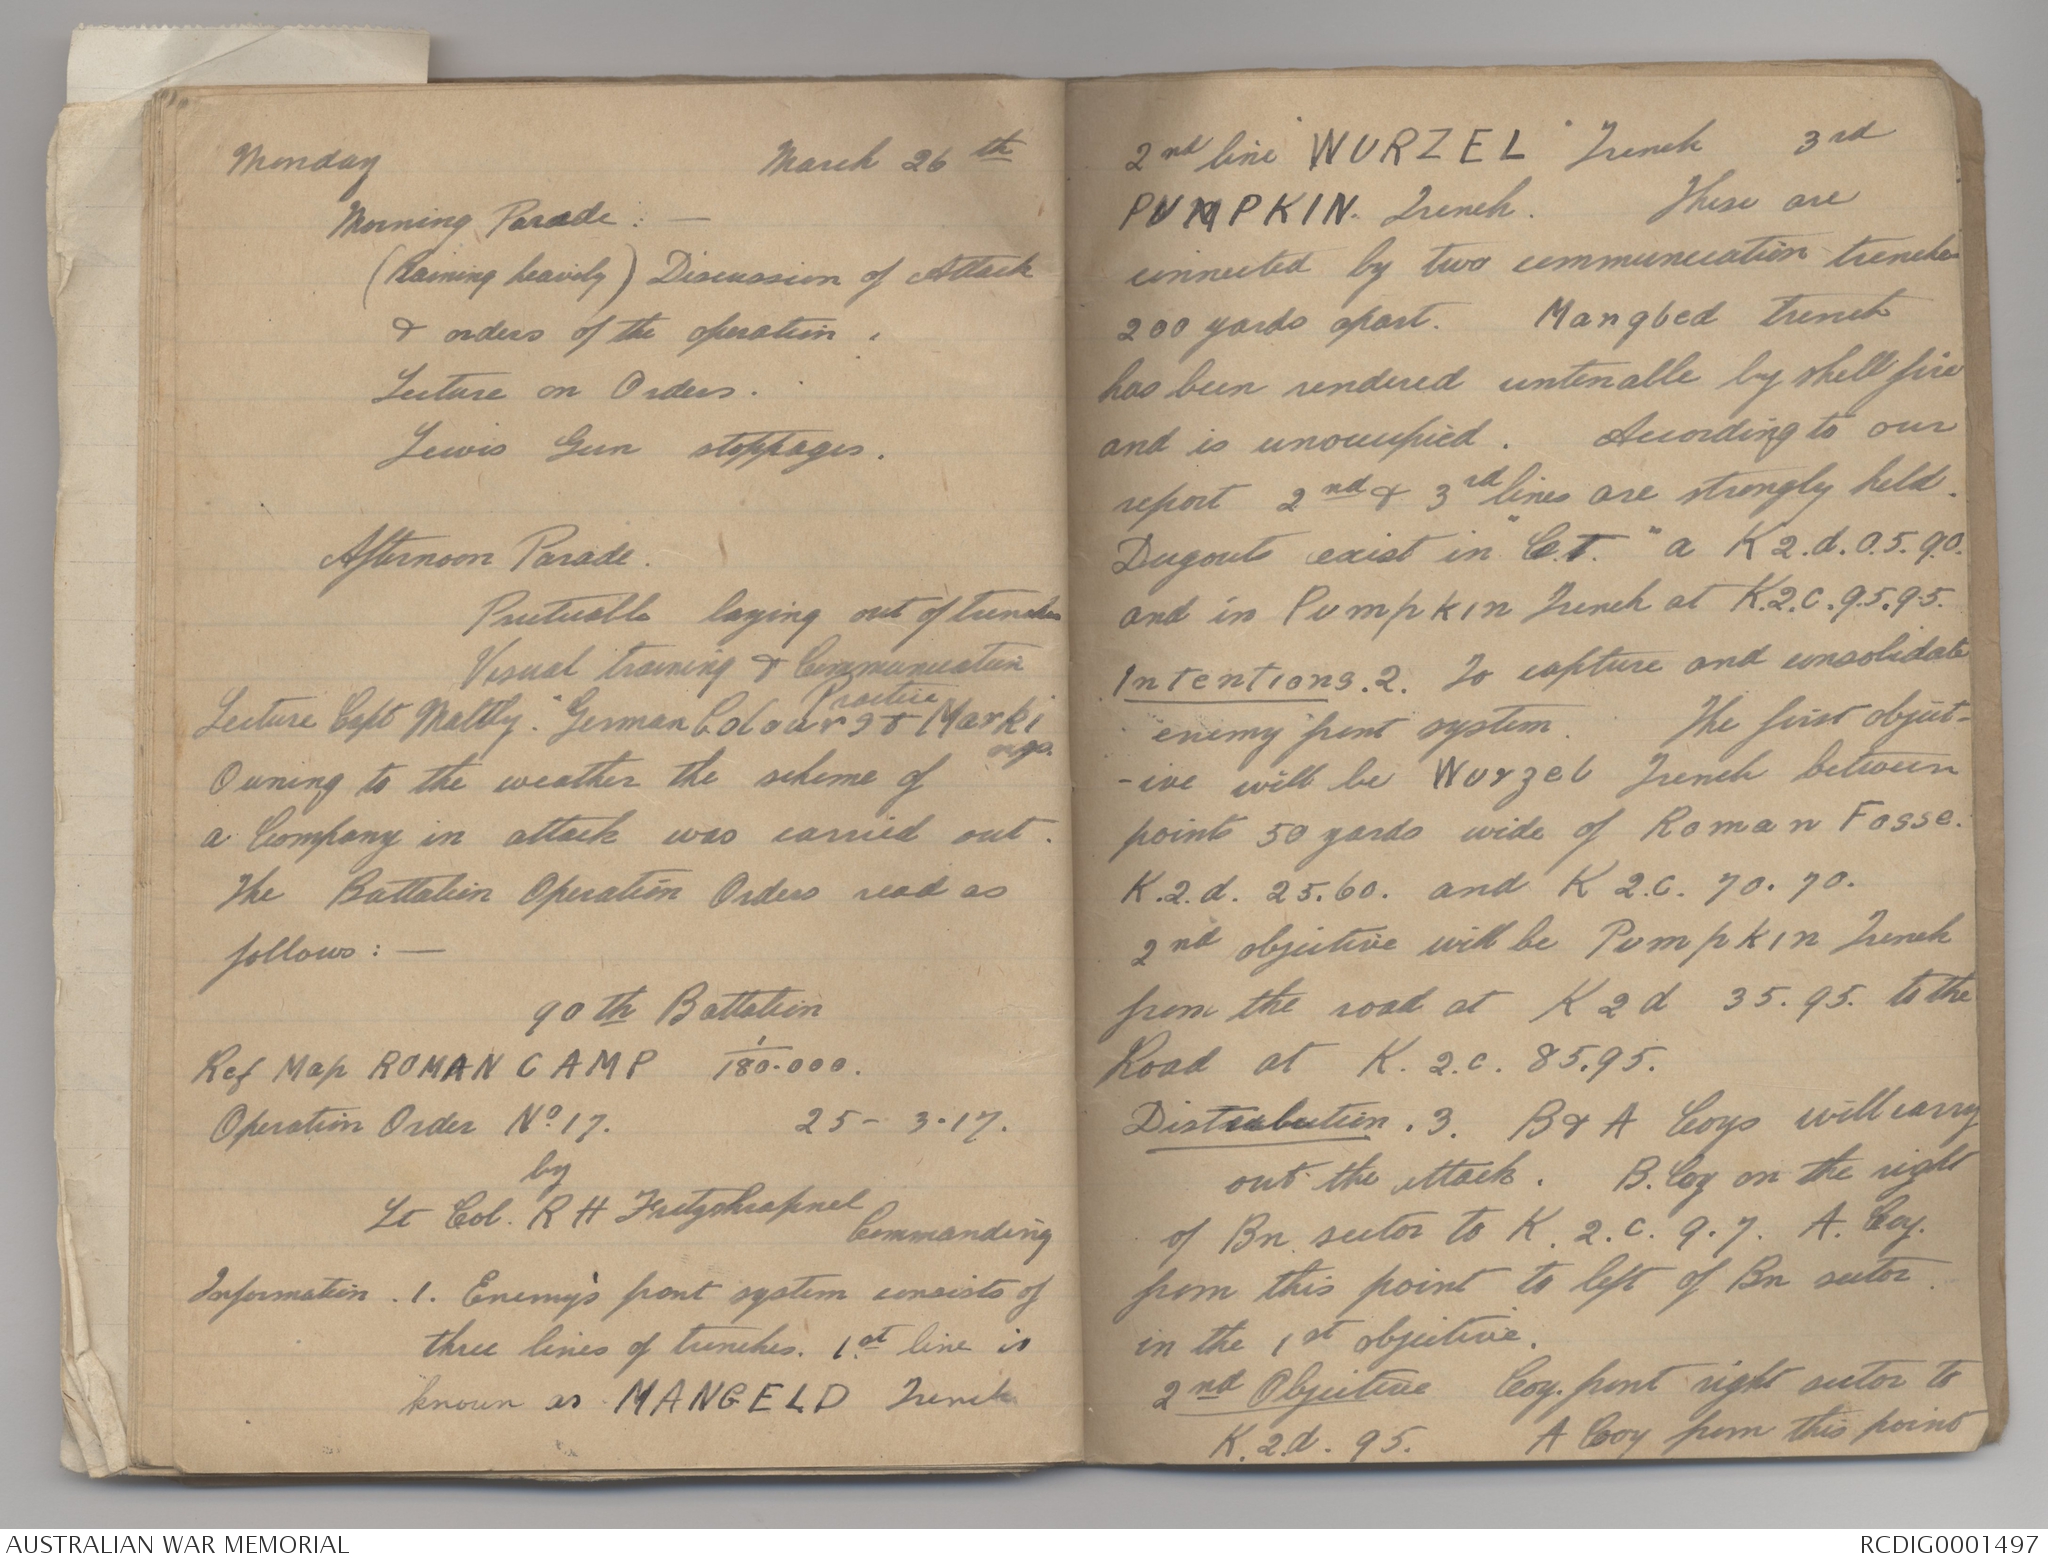 Monday March 26th
Morning Parade: —
(Raining heavily) Discussion of Attack
& orders of the operation.
Lecture on Orders.
Lewis Gun stoppages.
Afternoon Parade.
laying out of trenches
Visual training & Communication
Practice
Lecture Capt Maltby. "German Colours & Marki
ngs.
Owning to the weather the scheme of
a Company in attack was carried out.
The Battalion Operation Orders read as
follows: —
90th Battalion
Ref Map ROMAN CAMP 1/180.000.
Operation Order No 17. 25 - 3.17.
by
Lt Col. R H Fritzshrapnel
Commanding
Information. 1. Enemy's front system consists of
three lines of trenches. 1st line is
known as MANGELD Trench
2nd line "WURZEL" Trench 3rd
PUMPKIN. Trench. These are
connected by two communication trenches
200 yards apart. Mangled trench
has been rendered untenable by shell fire
and is unoccupied. According to our
report 2nd & 3rd lines are strongly held.
Dugouts exist in "C.T." a K2.d.05.90.
and in Pumpkin Trench at K.2.C.95.95.
Intentions. 2. To capture and consolidate
enemy front system. The first object-
-ive will be Wurzel Trench between
points 50 yards wide of Roman Fosse.
K.2.d. 25.60. and K 2.C. 70.70.
2nd objective will be Pumpkin Trench
from the road at K 2 d 35.95. to the
Road at K. 2.c. 85.95.
Distribution. 3. B & A Coys will carry
out the attack. B. Coy on the right
of Bn sector to K. 2. C. 9.7. A. Coy.
from this point to left of Bn sector.
in the 1st objective.
2nd Objective Coy. front right sector to
K. 2.d. 95. A Coy from this point
AUSTRALIAN WAR MEMORIAL RCDIG0001497